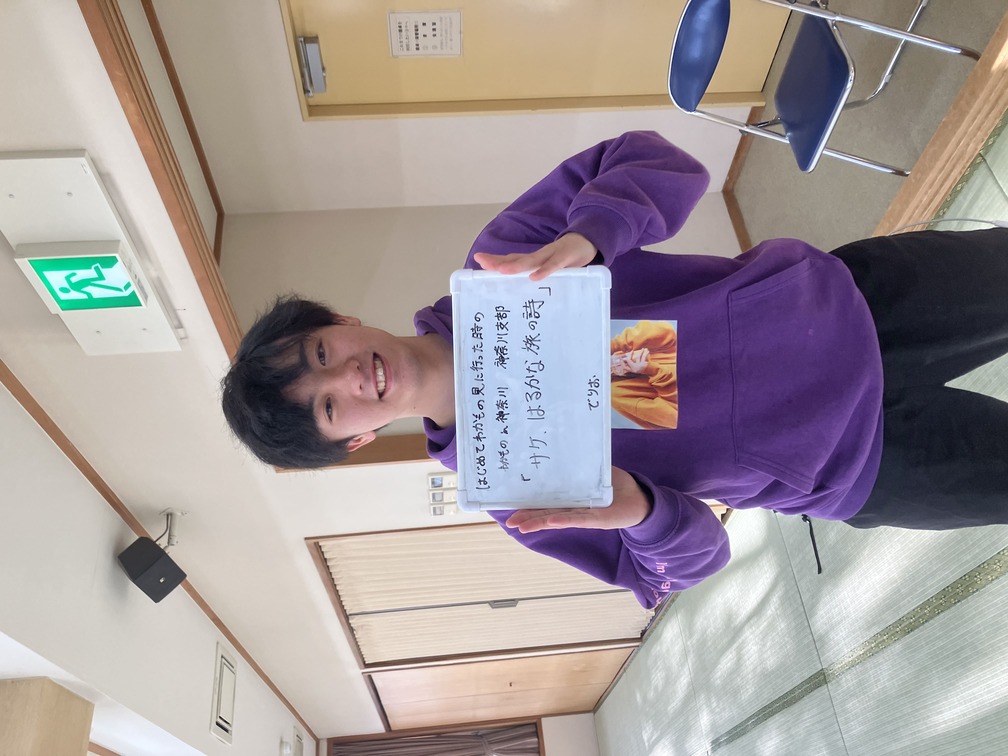 はじめてわかもの見に行った時の
わかもの in 神奈川 神奈川支部
「サケ、はるかな旅の詩」
でりお